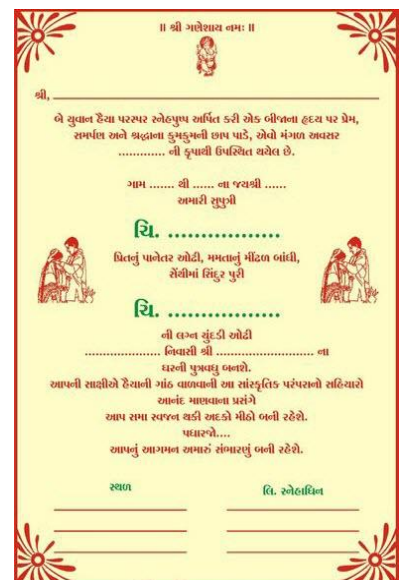 ॥ શ્રી ગણેશાય નમઃ ॥
શ્રી,
બે યુવાન હૈયા પરસ્પર સ્નેહપુષ્પ અર્પિત કરી એક બીજાના હૃદય પર પ્રેમ,
સમર્પણ અને શ્રદ્ધાના કુમકુમની છાપ પાડે, એવો મંગળ અવસર
............. ની કૃપાથી ઉપસ્થિત થયેલ છે.
ગામ ....... થી ...... ના જયશ્રી ......
અમારી સુપુત્રી
ચિ. .................
પ્રિતનું પાનેતર ઓઢી, મમતાનું મીંઢળ બાંધી,
સેંથીમાં સિંદુર પુરી
ચિ. .................
ની લગ્ન ચુંદડી ઓઢી
..................... નિવાસી શ્રી ........................... ના
ઘરની પુત્રવધુ બનશે.
આપની સાક્ષીએ હૈયાની ગાંઠ વાળવાની આ સાંસ્કૃતિક પરંપરાનો સહિયારો
આનંદ માણવાના પ્રસંગે
આપ સમા સ્વજન થકી અદકો મીઠો બની રહેશે.
પધારજો....
આપનું આગમન અમારું સંભારણું બની રહેશે.
સ્થળ
લિ. સ્નેહાધિન